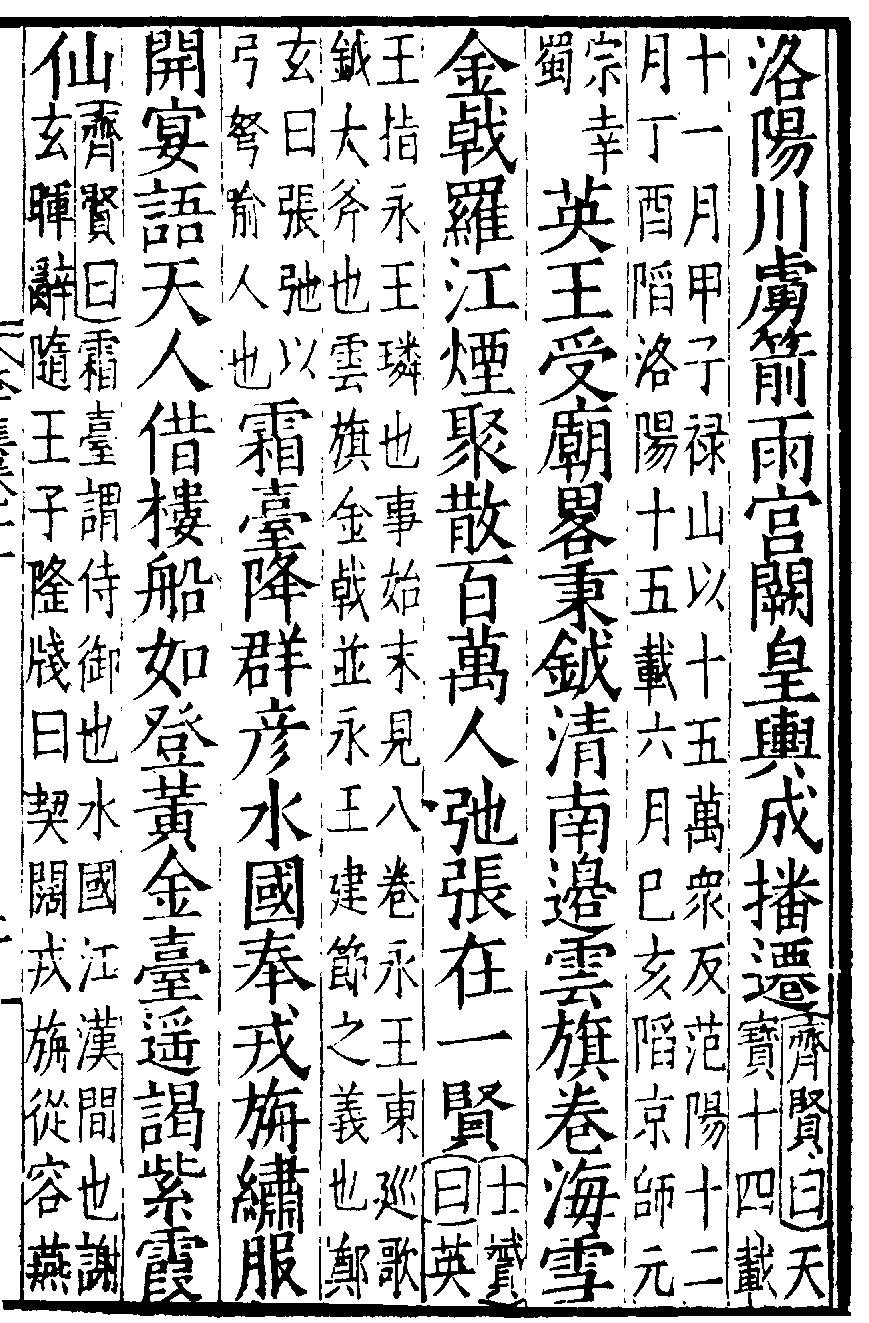 洛陽川虜箭雨宮闕皇輿成播遷
齊賢曰天
寶十四載
十一月甲子禄山以十五萬衆反范陽十二
月丁酉陷洛陽十五載六月巳亥陷京師元
宗幸
蜀
英王受廟畧秉鉞清南邊雲旗卷海雪
金戟羅江煙聚散百萬人弛張在一賢
士贇
曰英
王指永王璘也事始末見八卷永王東廵歌
鉞大斧也雲旗金戟並永王建節之義也鄭
玄曰張弛以
弓弩喻人也
霜臺降群彦水國奉戎旃繡服
開宴語天人借樓船如登黃金臺遥謁紫霞
仙
齊賢曰霜臺謂侍御也水國江漢間也謝
玄暉辭隨王子隆牋曰契闊戎旃從容燕